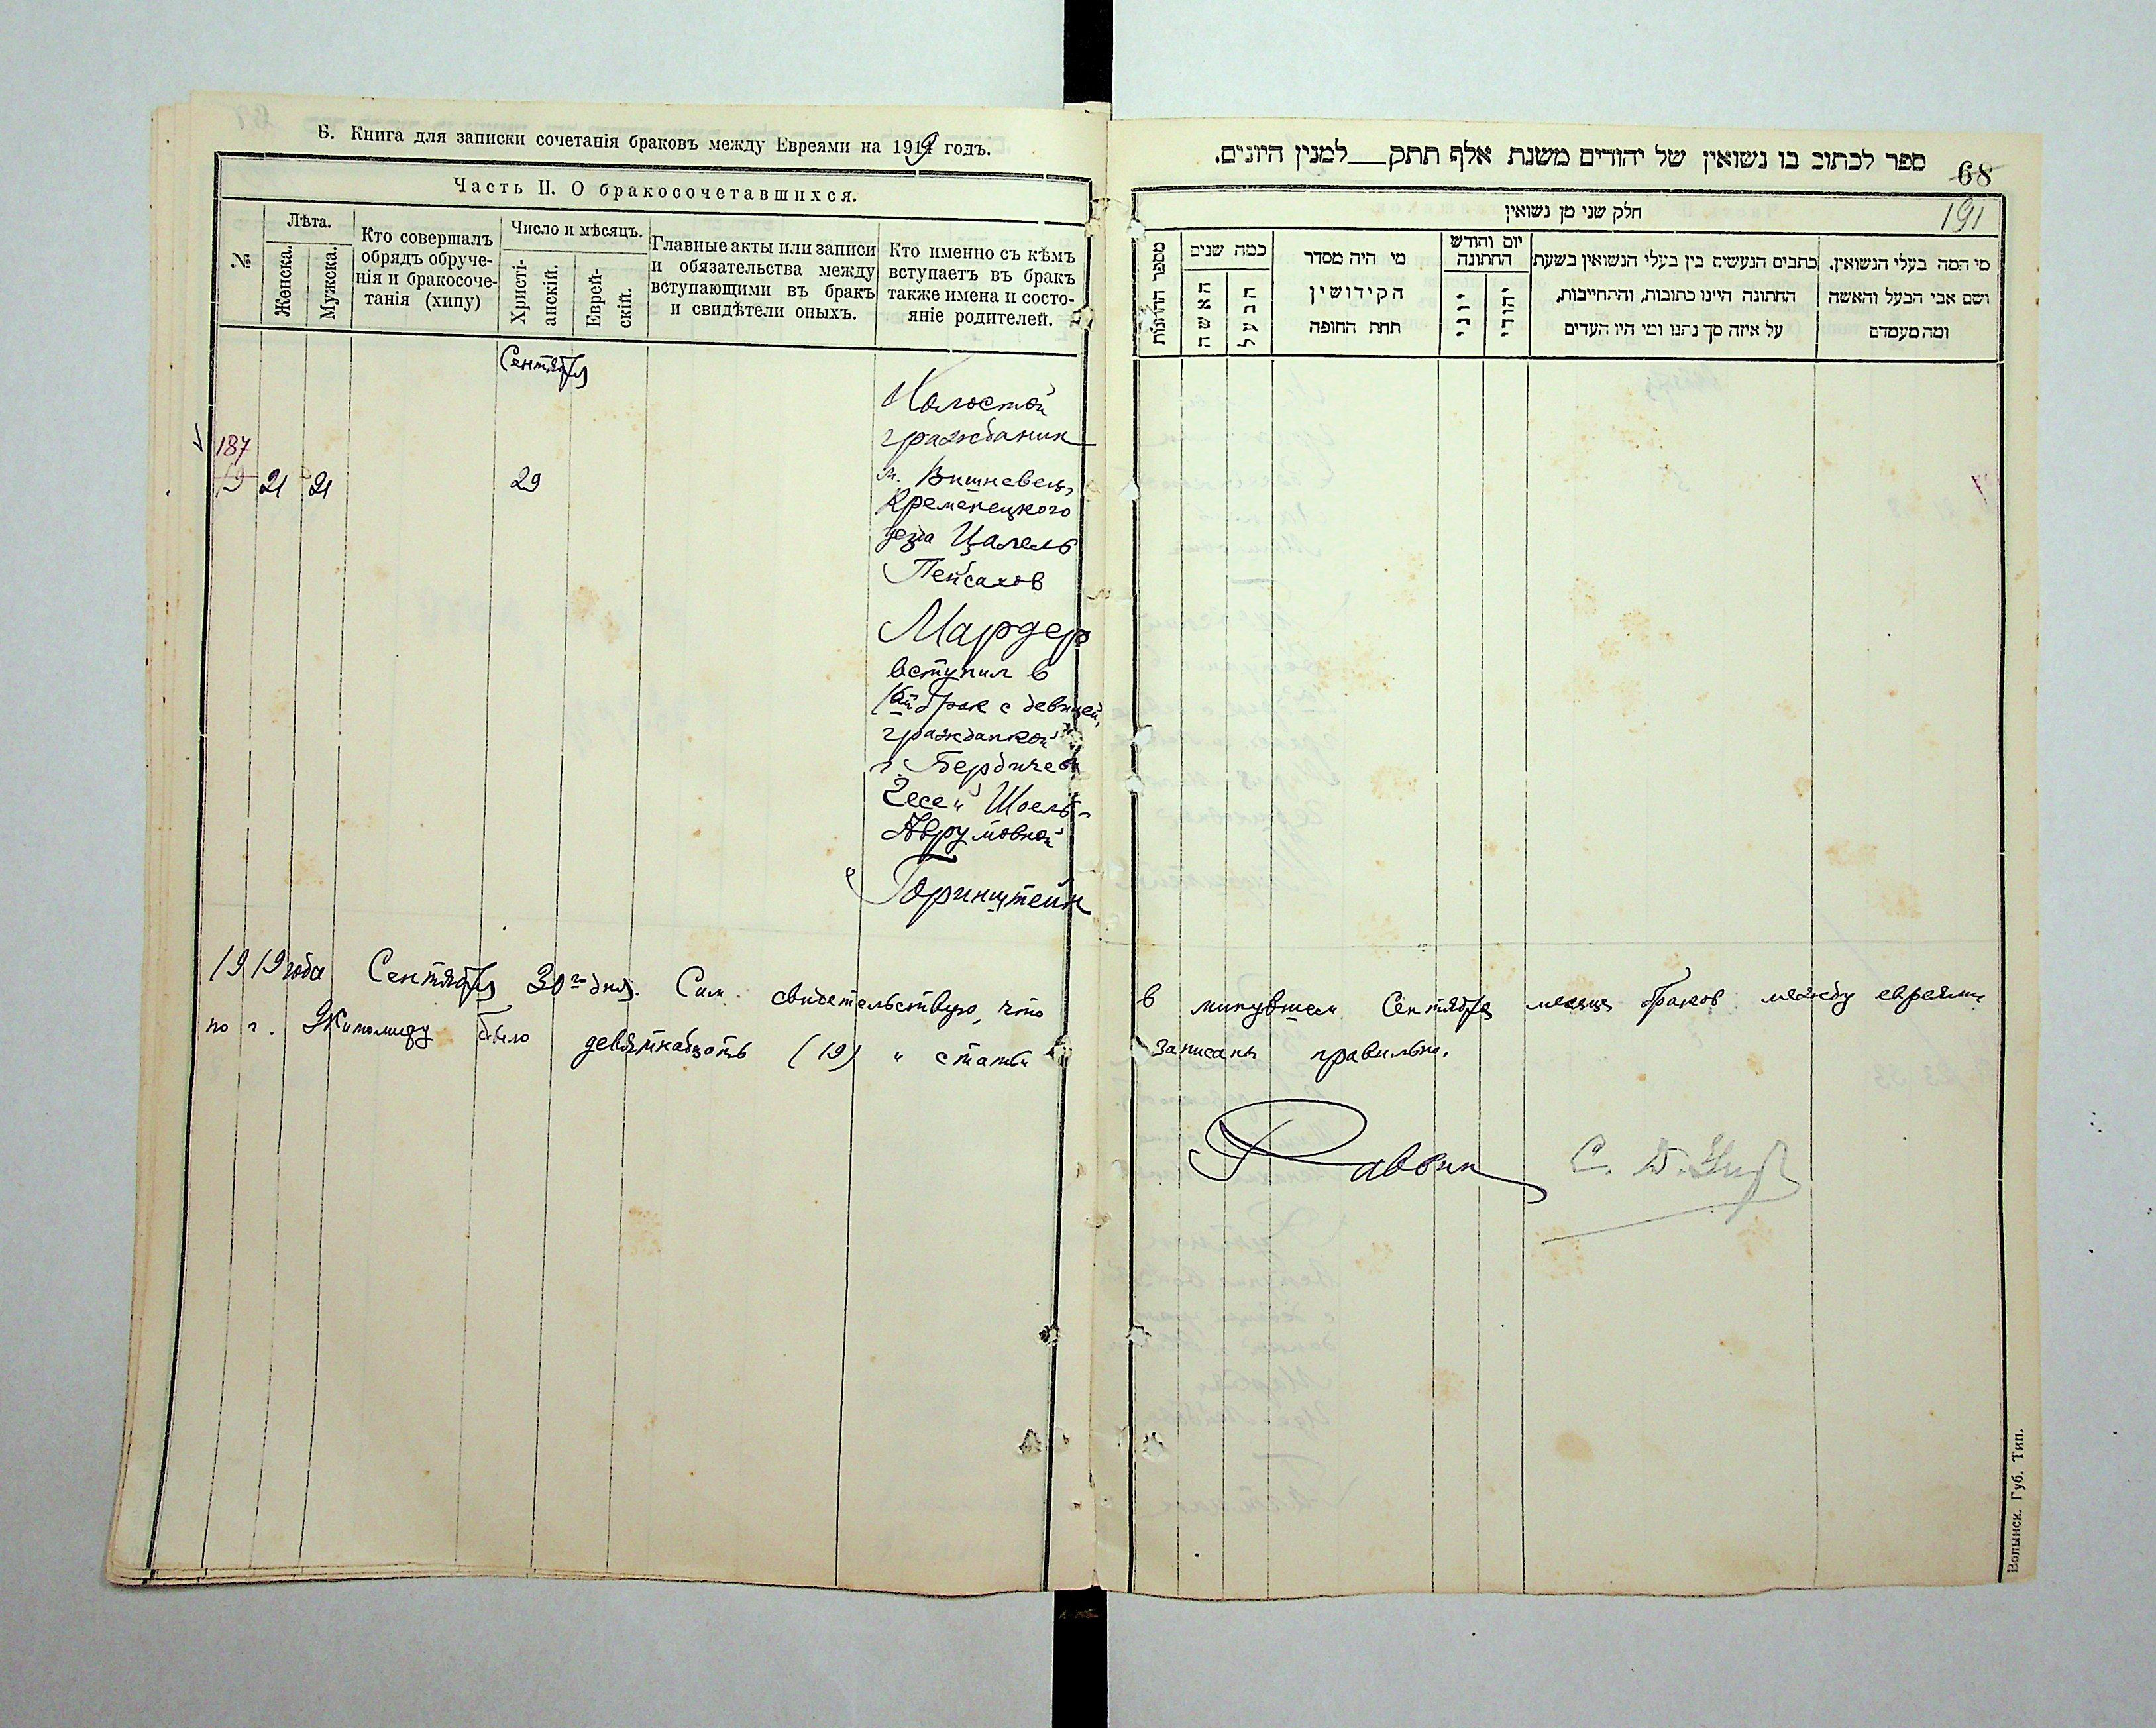 Б. Книга для записки сочетанія браковъ между Евреями на 1919 годъ.
Часть II. О бракосочетавшихся.
№
Лѣта.
Женска.
Мужска.
Кто совершалъ
обрядъ обруче-
нія и бракосоче-
танія (хипу)
Число и мѣсяцъ.
Христі-
анскій.
Еврей-
скій.
Главные акты или записи
и обязательства между
вступающими въ бракъ
и свидѣтели оныхъ.
Кто именно съ кѣмъ
вступаетъ въ бракъ
также имена и состо-
яніе родителей.
Сентября
187
19 21 21 29
Холостой
гражданин
м. Вишневец,
Кременецкого
уезда Цалель
Пейсахов
Мардер
вступил в
1ый брак с девицей,
гражданкой
г. Бердичева
Шоель-
Аврумовной
Горинштейн
1919 года Сентября 30го дня. Сим свидетельствую, что
по г. Житомиру было девятнадцать (19) и статьи
ספר לכתוב בו נשואין של יהודים משנת אלף תתק__למנין היונים.
68
191
חלק שני מן נשואין
מספר החתונות
כמה שנים
האשה
הבעל
מי היה מסדר
הקידושין
תחת החופה
יום וחודש
החתונה
יוני
יהודי
כתבים הנעשים בין בעלי הנשואין בשעת
החתונה היינו כתובות, והתחייבות,
על איזה סך נתנו ומי היו העדים
מי המה בעלי הנשואין.
ושם אבי הבעל והאשה
ומה מעמדם
в минувшем Сентябре месяце браков между евреями
записаны правильно.
Раввин
Волынск. Губ. Тип.